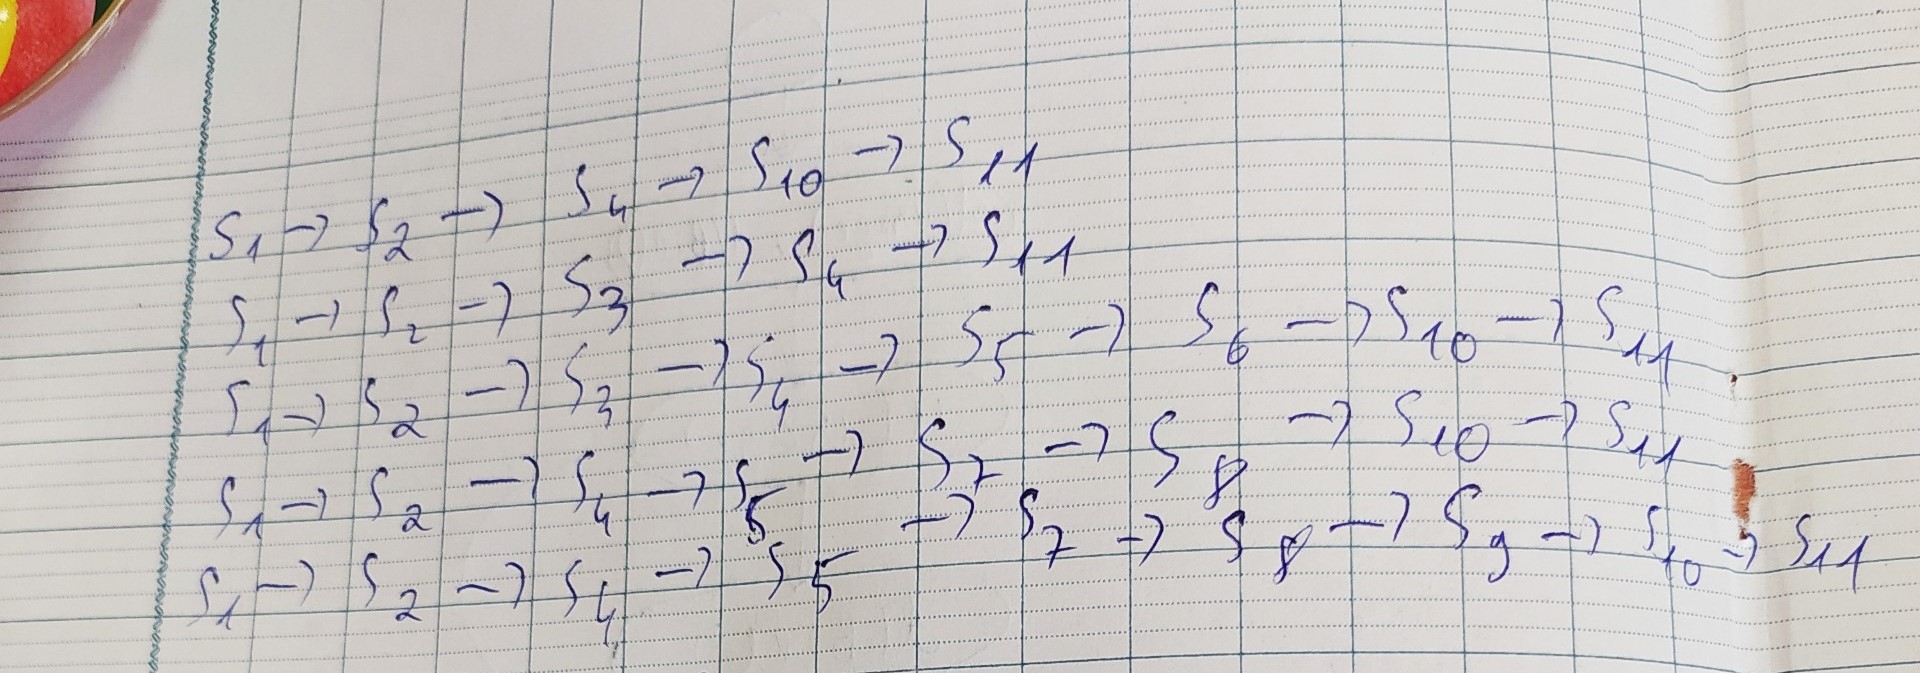 S1 → S2 → S4 → S10 → S11
S1 → S2 → S3 → S4 → S11
S1 → S2 → S3 → S4 → S5 → S6 → S10 → S11
S1 → S2 → S4 → S5 → S7 → S8 → S10 → S11
S1 → S2 → S4 → S5 → S7 → S8 → S9 → S10 → S11